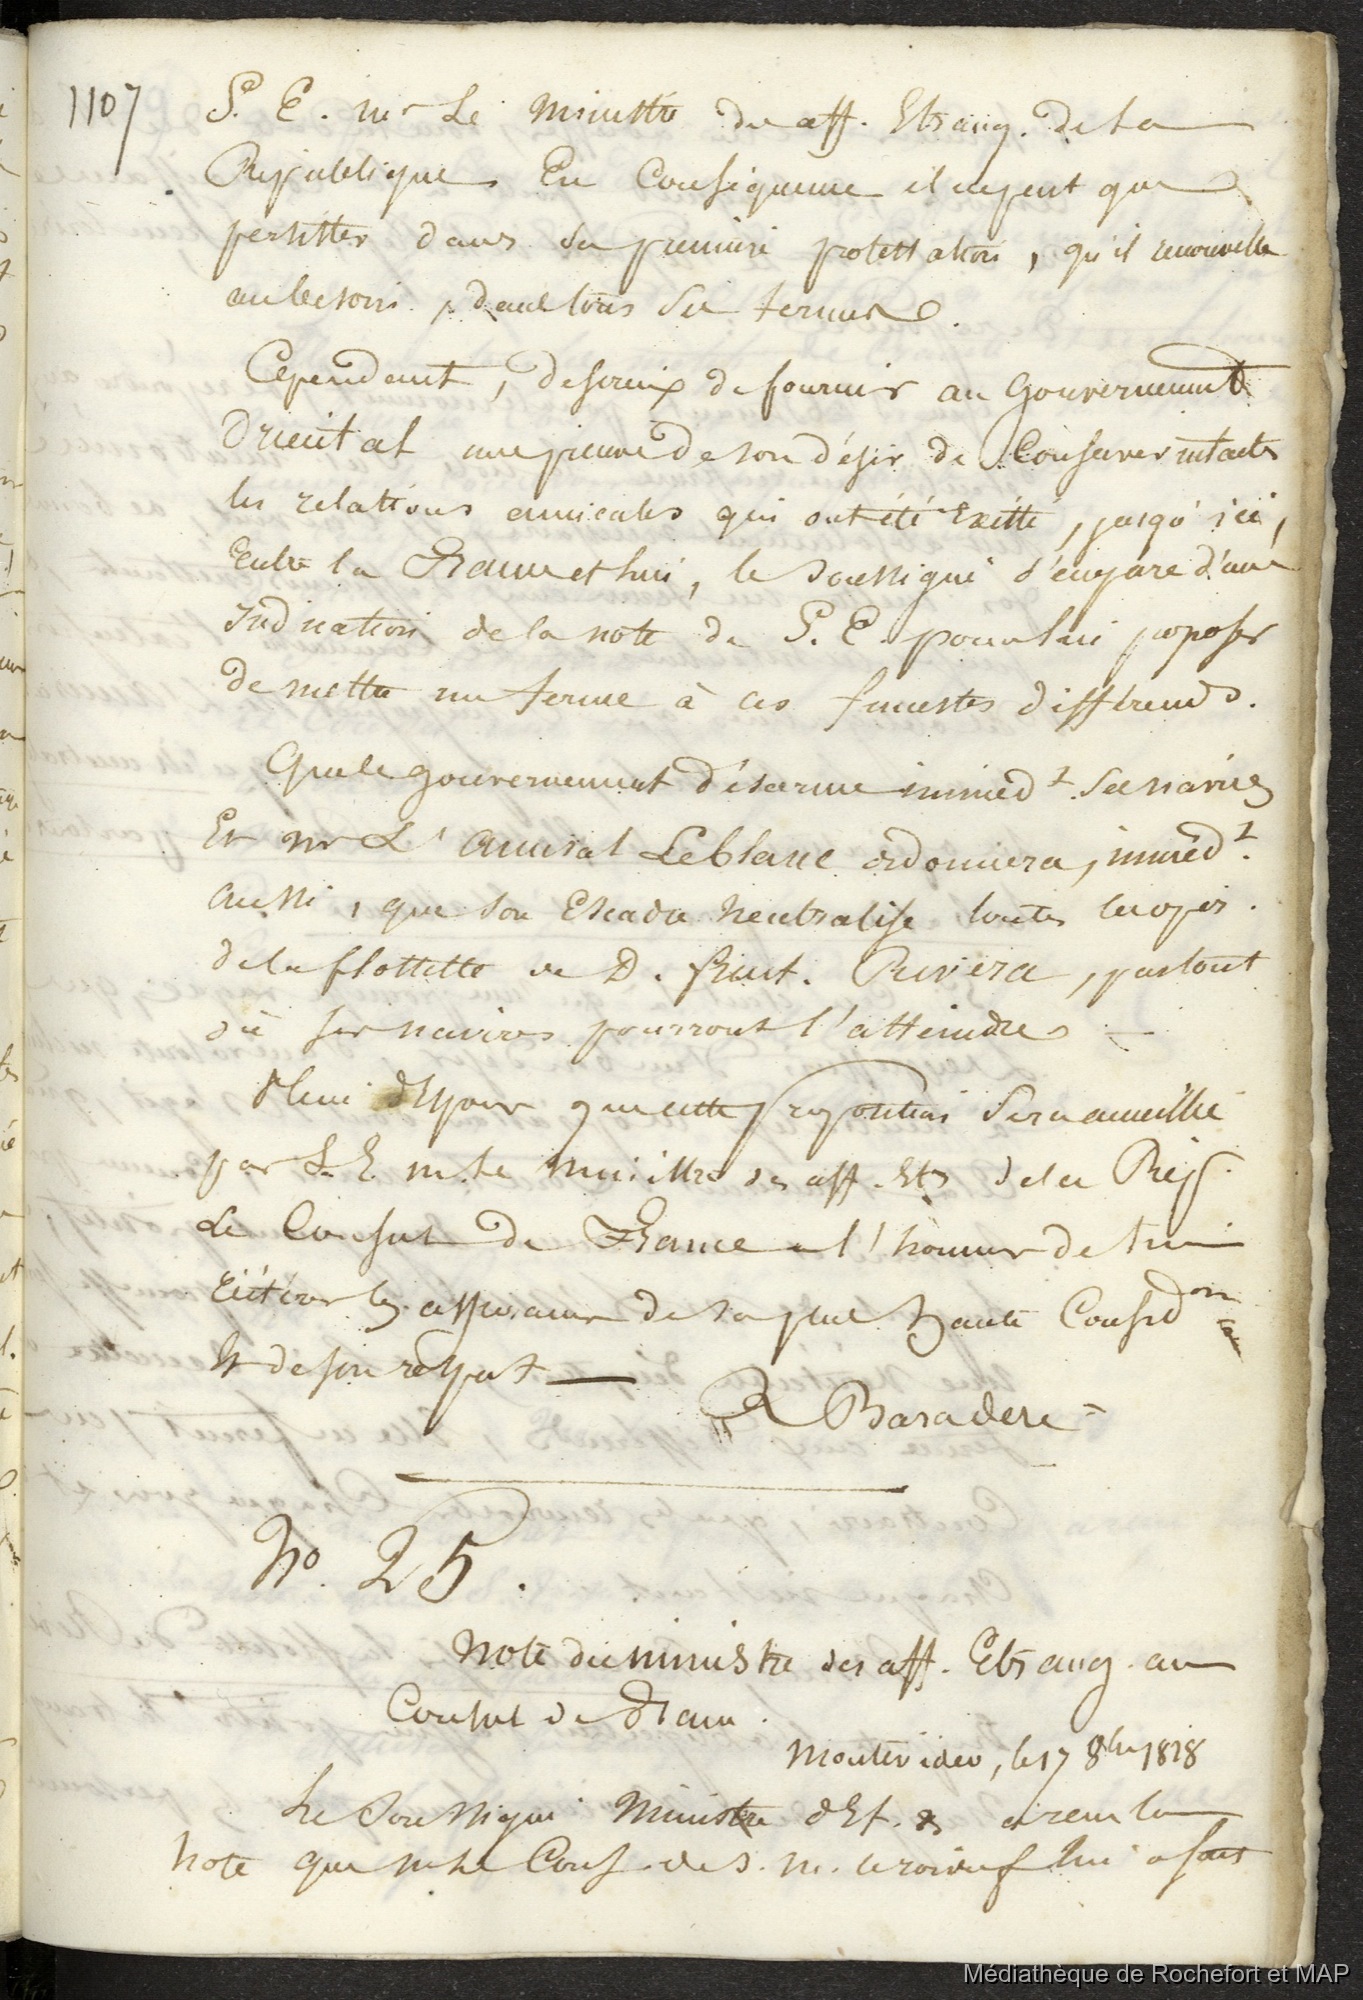 1107
S. E. mr Le Ministre des aff. Etrang. de la
République. En Conséquence il ne peut que
persister dans sa premiere protestation, qu'il renouvelle
au besoin, dans tous ses termes.
Cependant, desireux de fournir au Gouvernement
Oriental une preuve de son désir de Conserver intactes
les relations amicales qui ont été Existé, jusqu'ici,
Entre la France et lui, le Soussigné s'empare d'une
indication de la note de S. E. pour lui proposer
de mettre un terme à ces funestes différends.
Que le gouvernement désarme immédt. ses navires
Et mr L'Amiral Leblanc ordonnera, imméd t.
aussi, que son Escadre neutralise toutes les opér.
de la flottille de D. Fruct. Rivera, partout
où ses navires pourront l'atteindre —
Plein d'Espoir que cette proposition sera accueillie
par S. E. m. Le Ministre des aff. Etr. de la Rép.
Le Consul de France a l'honneur de lui
réitérer les assurances de sa plus haute Considon
Et de son respect —
R Baradere =
No. 25.
Note du ministre des aff. Etrang. au
Consul de France.
Montévideo, le 17 8bre 1838
Le Soussigné Ministre d'Et. & a reçu la
note que m. le Cons. de S. M. le roi des f. lui a fait